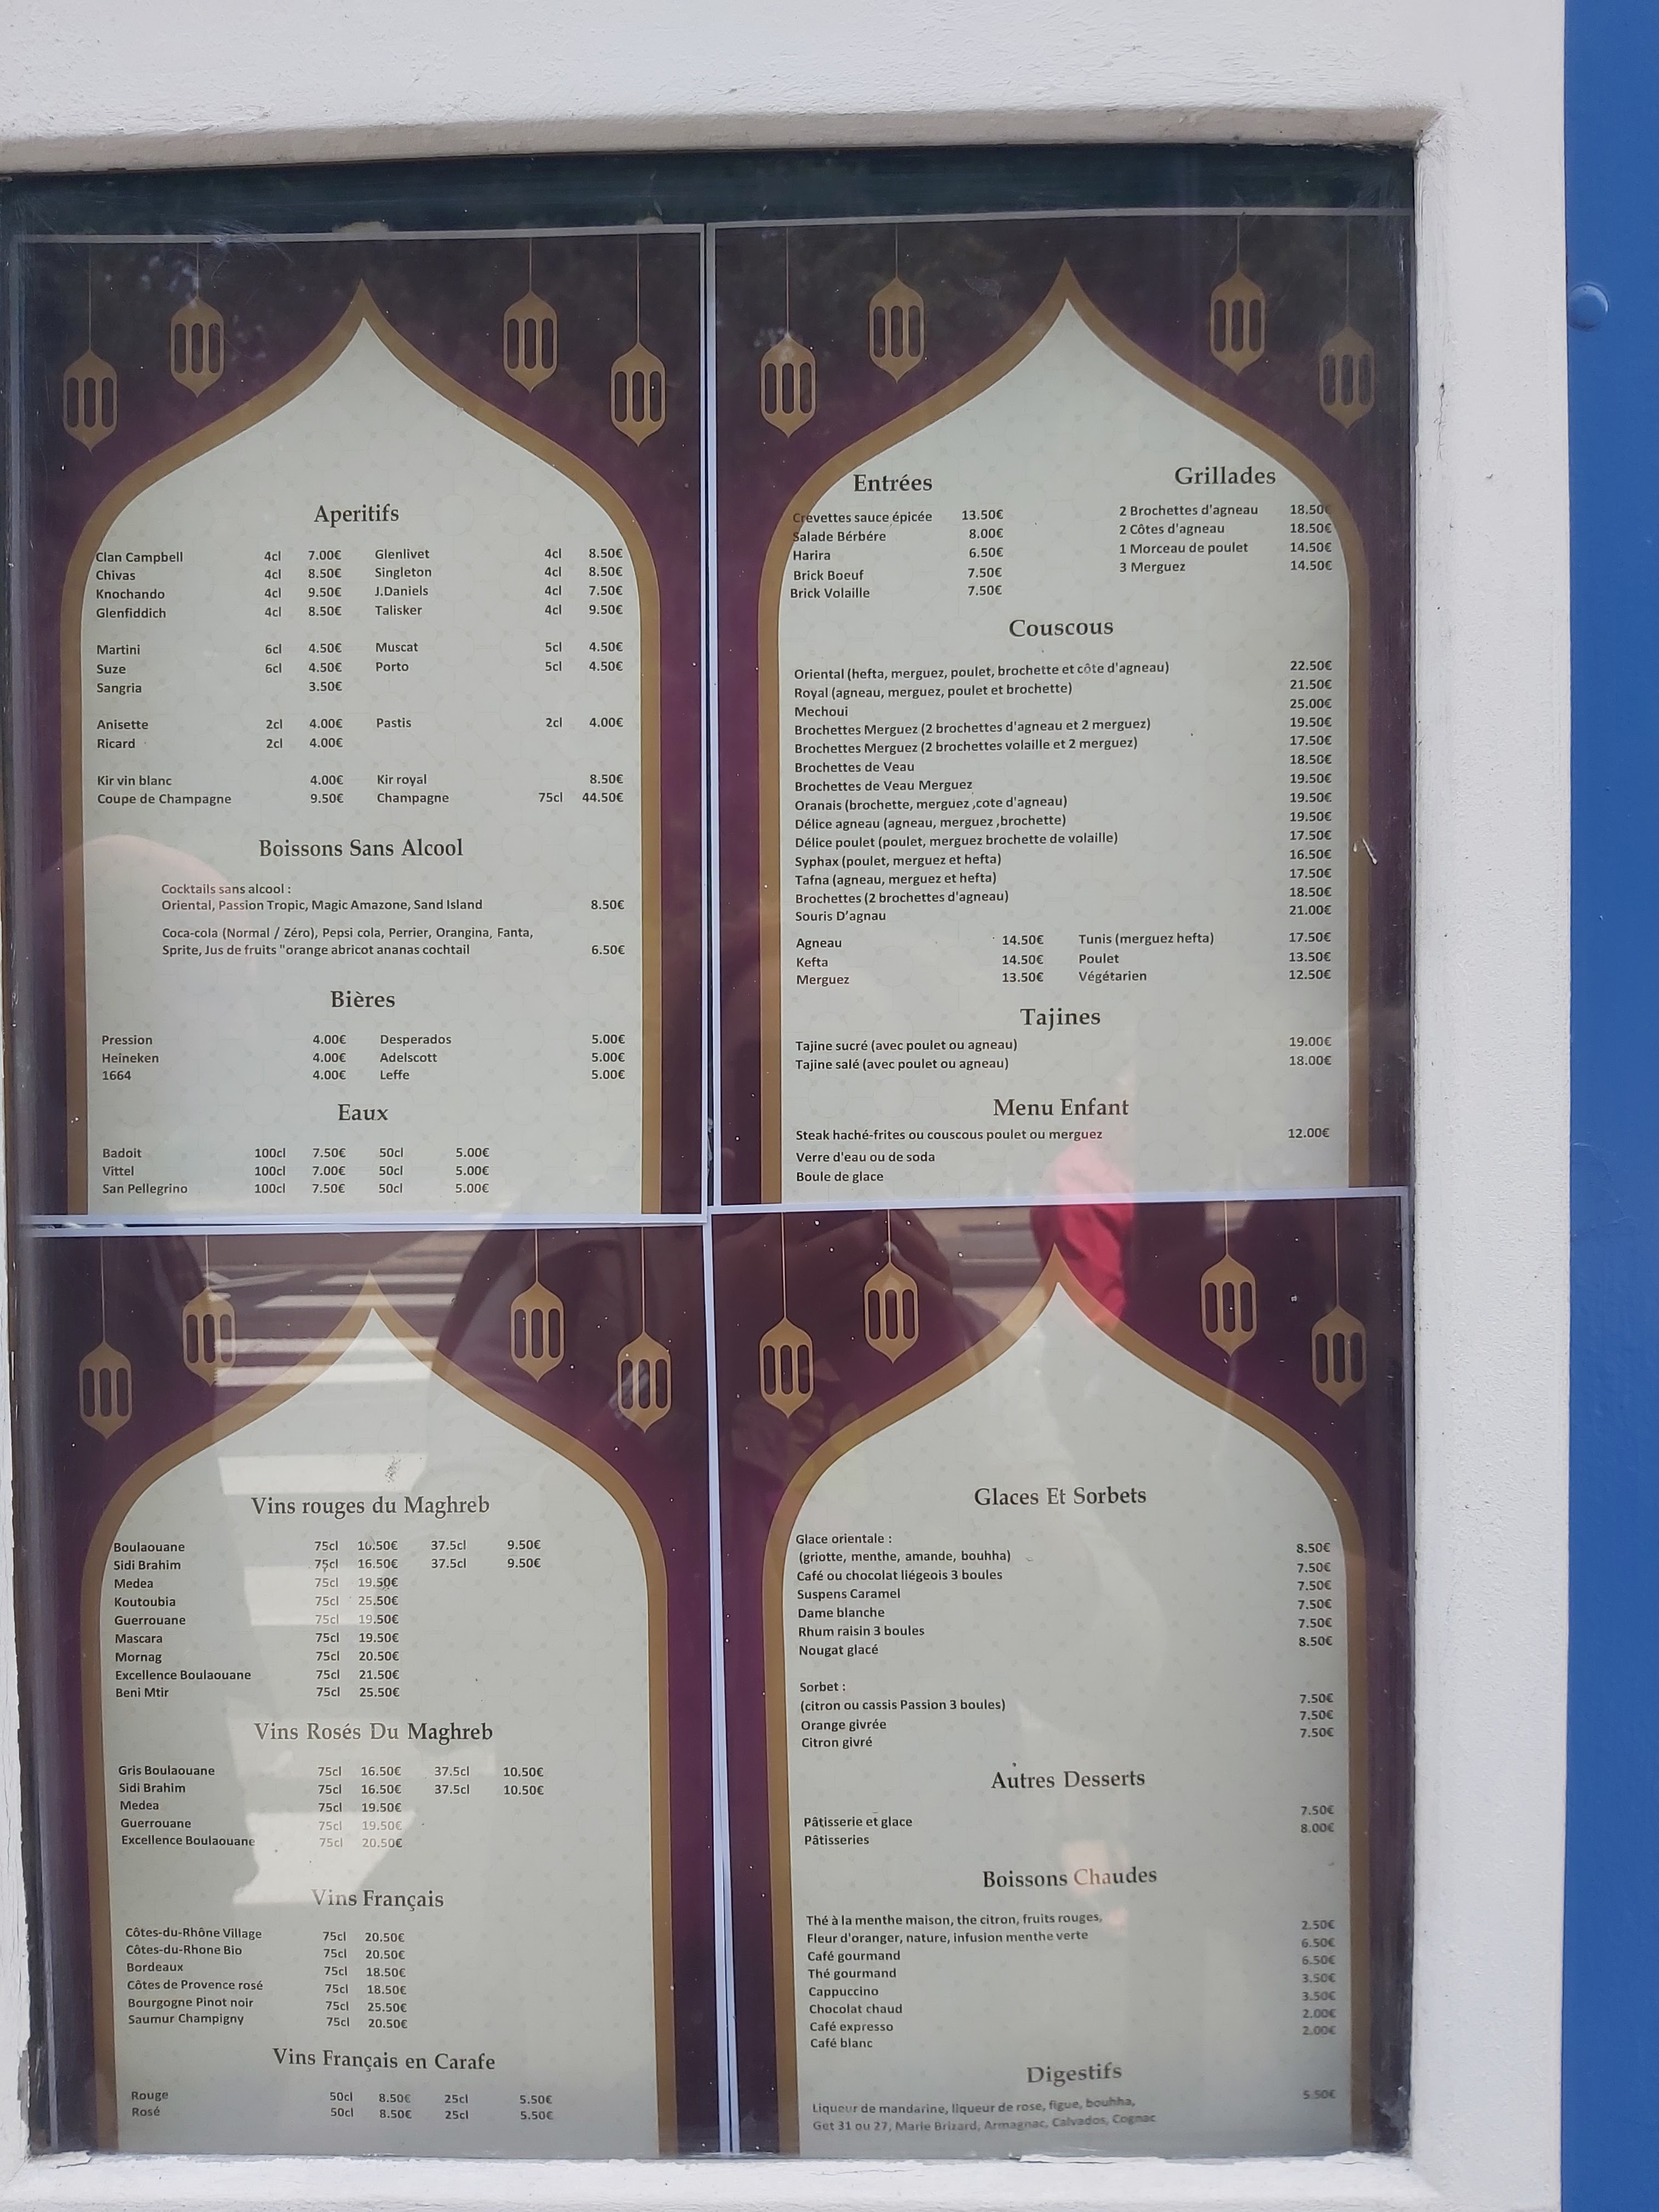 Aperitifs
Clan Campbell 4cl 7.00€ Glenlivet 4cl 8.50€
Chivas 4cl 8.50€ Singleton 4cl 8.50€
Knochando 4cl 9.50€ J.Daniels 4cl 7.50€
Glenfiddich 4cl 8.50€ Talisker 4cl 9.50€
Martini 6cl 4.50€ Muscat 5cl 4.50€
Suze 6cl 4.50€ Porto 5cl 4.50€
Sangria 3.50€
Anisette 2cl 4.00€ Pastis 2cl 4.00€
Ricard 2cl 4.00€
Kir vin blanc 4.00€ Kir royal 8.50€
Coupe de Champagne 9.50€ Champagne 75cl 44.50€
Boissons Sans Alcool
Cocktails sans alcool :
Oriental, Passion Tropic, Magic Amazone, Sand Island 8.50€
Coca-cola (Normal / Zéro), Pepsi cola, Perrier, Orangina, Fanta,
Sprite, Jus de fruits "orange abricot ananas cochtail 6.50€
Bières
Pression 4.00€ Desperados 5.00€
Heineken 4.00€ Adelscott 5.00€
1664 4.00€ Leffe 5.00€
Eaux
Badoit 100cl 7.50€ 50cl 5.00€
Vittel 100cl 7.00€ 50cl 5.00€
San Pellegrino 100cl 7.50€ 50cl 5.00€
Entrées
Crevettes sauce épicée 13.50€
Salade Bérbére 8.00€
Harira 6.50€
Brick Boeuf 7.50€
Brick Volaille 7.50€
Grillades
2 Brochettes d'agneau 18.50€
2 Côtes d'agneau 18.50€
1 Morceau de poulet 14.50€
3 Merguez 14.50€
Couscous
Oriental (hefta, merguez, poulet, brochette et côte d'agneau) 22.50€
Royal (agneau, merguez, poulet et brochette) 21.50€
Mechoui 25.00€
Brochettes Merguez (2 brochettes d'agneau et 2 merguez) 19.50€
Brochettes Merguez (2 brochettes volaille et 2 merguez) 17.50€
Brochettes de Veau 18.50€
Brochettes de Veau Merguez 19.50€
Oranais (brochette, merguez ,cote d'agneau) 19.50€
Délice agneau (agneau, merguez ,brochette) 19.50€
Délice poulet (poulet, merguez brochette de volaille) 17.50€
Syphax (poulet, merguez et hefta) 16.50€
Tafna (agneau, merguez et hefta) 17.50€
Brochettes (2 brochettes d'agneau) 18.50€
Souris D'agnau 21.00€
Agneau 14.50€ Tunis (merguez hefta) 17.50€
Kefta 14.50€ Poulet 13.50€
Merguez 13.50€ Végétarien 12.50€
Tajines
Tajine sucré (avec poulet ou agneau) 19.00€
Tajine salé (avec poulet ou agneau) 18.00€
Menu Enfant
Steak haché-frites ou couscous poulet ou merguez 12.00€
Verre d'eau ou de soda
Boule de glace
Vins rouges du Maghreb
Boulaouane 75cl 16.50€ 37.5cl 9.50€
Sidi Brahim 75cl 16.50€ 37.5cl 9.50€
Medea 75cl 19.50€
Koutoubia 75cl 25.50€
Guerrouane 75cl 19.50€
Mascara 75cl 19.50€
Mornag 75cl 20.50€
Excellence Boulaouane 75cl 21.50€
Beni Mtir 75cl 25.50€
Vins Rosés Du Maghreb
Gris Boulaouane 75cl 16.50€ 37.5cl 10.50€
Sidi Brahim 75cl 16.50€ 37.5cl 10.50€
Medea 75cl 19.50€
Guerrouane 75cl 19.50€
Excellence Boulaouane 75cl 20.50€
Vins Français
Côtes-du-Rhône Village 75cl 20.50€
Côtes-du-Rhone Bio 75cl 20.50€
Bordeaux 75cl 18.50€
Côtes de Provence rosé 75cl 18.50€
Bourgogne Pinot noir 75cl 25.50€
Saumur Champigny 75cl 20.50€
Vins Français en Carafe
Rouge 50cl 8.50€ 25cl 5.50€
Rosé 50cl 8.50€ 25cl 5.50€
Glaces Et Sorbets
Glace orientale :
(griotte, menthe, amande, bouhha) 8.50€
Café ou chocolat liégeois 3 boules 7.50€
Suspens Caramel 7.50€
Dame blanche 7.50€
Rhum raisin 3 boules 7.50€
Nougat glacé 8.50€
Sorbet :
(citron ou cassis Passion 3 boules) 7.50€
Orange givrée 7.50€
Citron givré 7.50€
Autres Desserts
Pâtisserie et glace 7.50€
Pâtisseries 8.00€
Boissons Chaudes
Thé à la menthe maison, the citron, fruits rouges,
Fleur d'oranger, nature, infusion menthe verte 2.50€
Café gourmand 6.50€
Thé gourmand 6.50€
Cappuccino 3.50€
Chocolat chaud 3.50€
Café expresso 2.00€
Café blanc 2.00€
Digestifs
Liqueur de mandarine, liqueur de rose, figue, bouhha, 5.50€
Get 31 ou 27, Marie Brizard, Armagnac, Calvados, Cognac